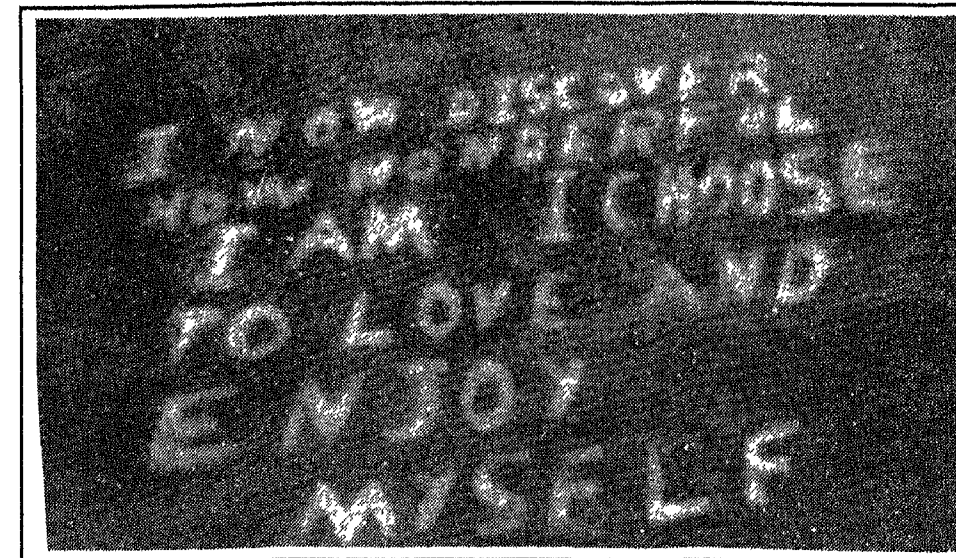 I NOW DISCOVER
HOW WONDERFUL
I AM I CHOOSE
TO LOVE AND
ENJOY
MYSELF